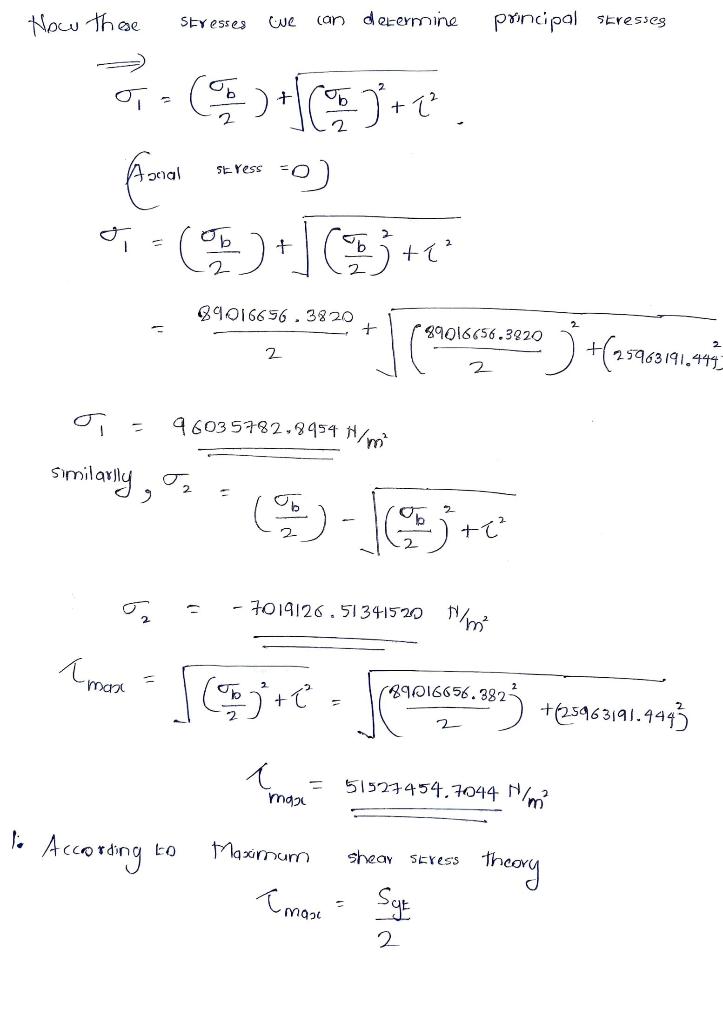 Now these stresses we can determine principal stresses
⟹
σ₁ = (σb/2) + √((σb/2)² + τ²) .
(Axial stress = 0)
σ₁ = (σb/2) + √((σb/2)² + τ²)
= 89016656.3820/2 + √((89016656.3820/2)² + (25963191.444)²
σ₁ = 96035782.8954 N/m²
similarlly, σ₂ = (σb/2) - √((σb/2)² + τ²)
σ₂ = - 7019126.51341520 N/m²
τmax = √((σb/2)² + τ²) = √((89016656.382/2)² + (25963191.444)²)
τmax = 51527454.7044 N/m²
1. According to Maximum shear stress theory
τmax = Syt/2